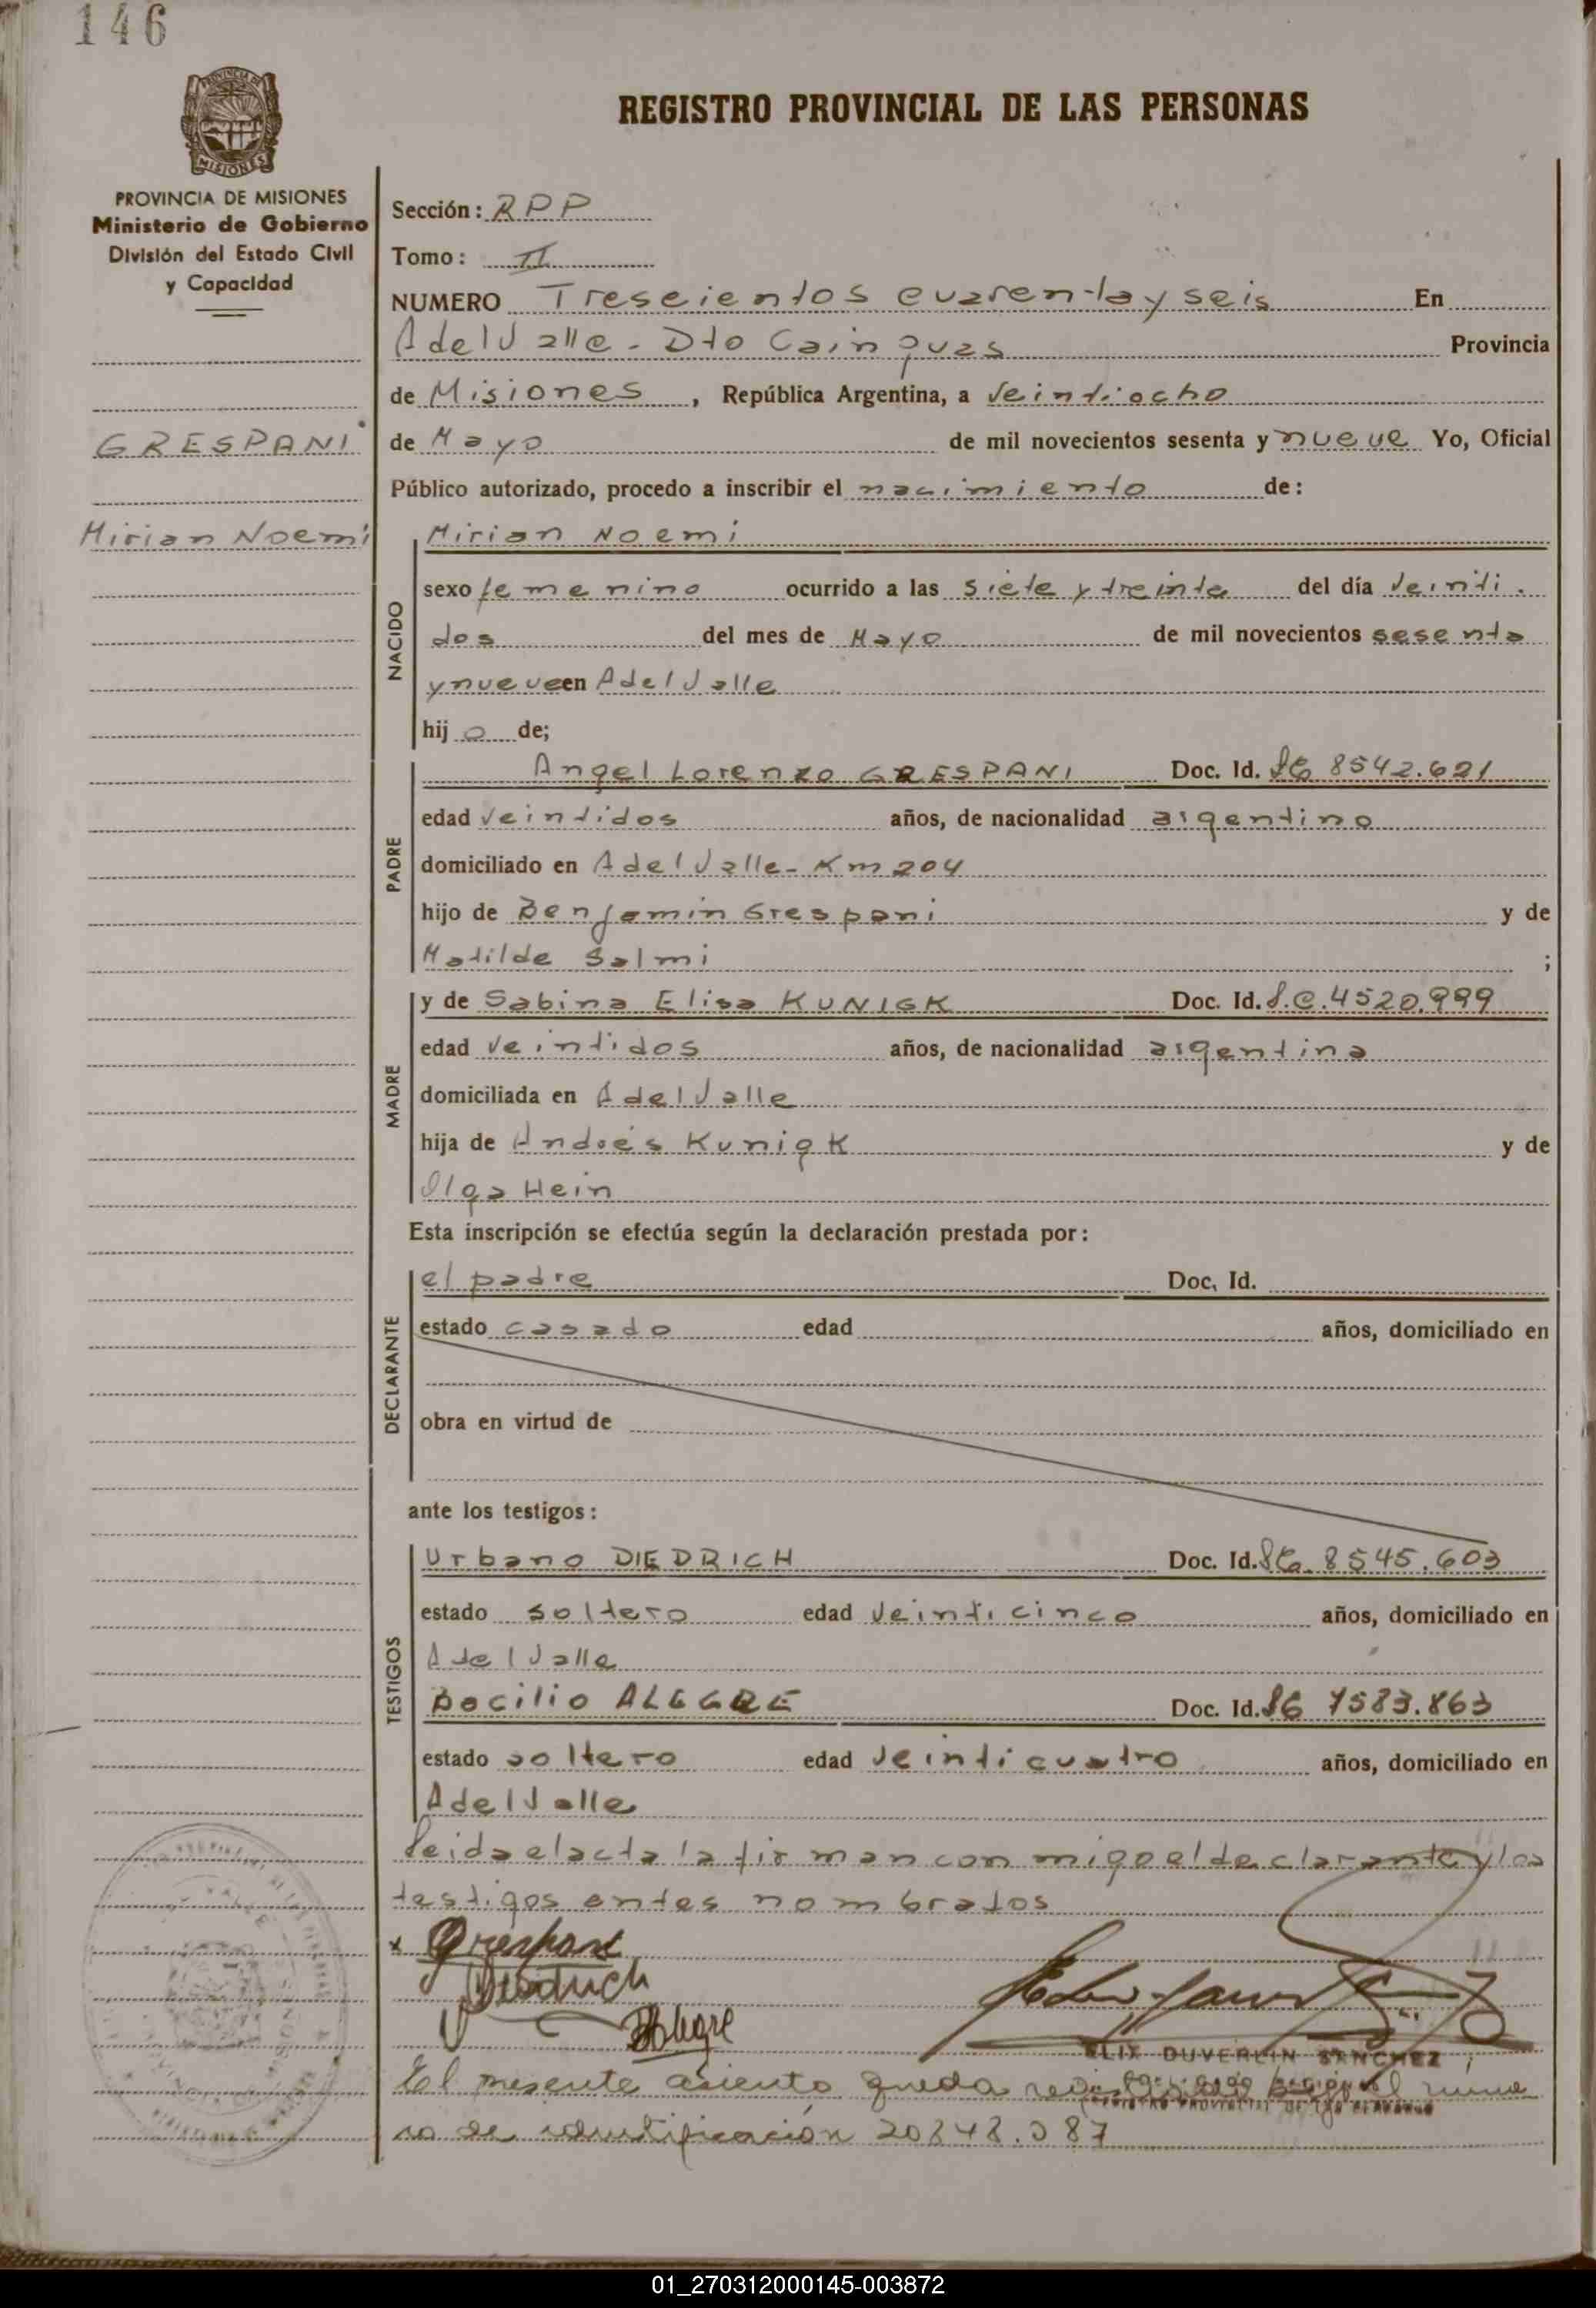 146
REGISTRO PROVINCIAL DE LAS PERSONAS
PROVINCIA DE MISIONES
Ministerio de Gobierno
División del Estado Civil
y Capacidad
GRESPANI
Mirian Noemi
Sección: RPP
Tomo: II
NUMERO Trescientos cuarenta y seis En
A del Valle - Dto Cainguas Provincia
de Misiones, República Argentina, a Veintiocho
de Mayo de mil novecientos sesenta y nueve Yo, Oficial
Público autorizado, procedo a inscribir el nacimiento de:
NACIDO
Mirian Noemi
sexo femenino ocurrido a las siete y treinta del día Veinti.
dos del mes de Mayo de mil novecientos sesenta
y nueve en A del Valle
hijo de;
PADRE
Angel Lorenzo GRESPANI Doc. Id. 8542.621
edad Veintidos años, de nacionalidad argentino
domiciliado en A del Valle - Km 204
hijo de Benjamin Grespani y de
Matilde Salmi ;
MADRE
y de Sabina Elisa KUNIGK Doc. Id. L.C. 4520.999
edad Veintidos años, de nacionalidad argentina
domiciliada en A del Valle
hija de Andrés Kunigk y de
Olga Hein
Esta inscripción se efectúa según la declaración prestada por:
DECLARANTE
el padre Doc. Id.
estado casado edad años, domiciliado en
obra en virtud de
ante los testigos:
TESTIGOS
Urbano DIEDRICH Doc. Id. 8545.603
estado soltero edad Veinticinco años, domiciliado en
A del Valle
Bacilio ALEGRE Doc. Id. 7583.863
estado soltero edad Veinticuatro años, domiciliado en
A del Valle
Leida el acta la firman conmigo el declarante y los
testigos antes nombrados
x Grespani
Diedrich
Alegre
DUVERLIN SANCHEZ
El presente asiento queda registrado bajo el núme
ro de identificación 20848.087
01_270312000145-003872